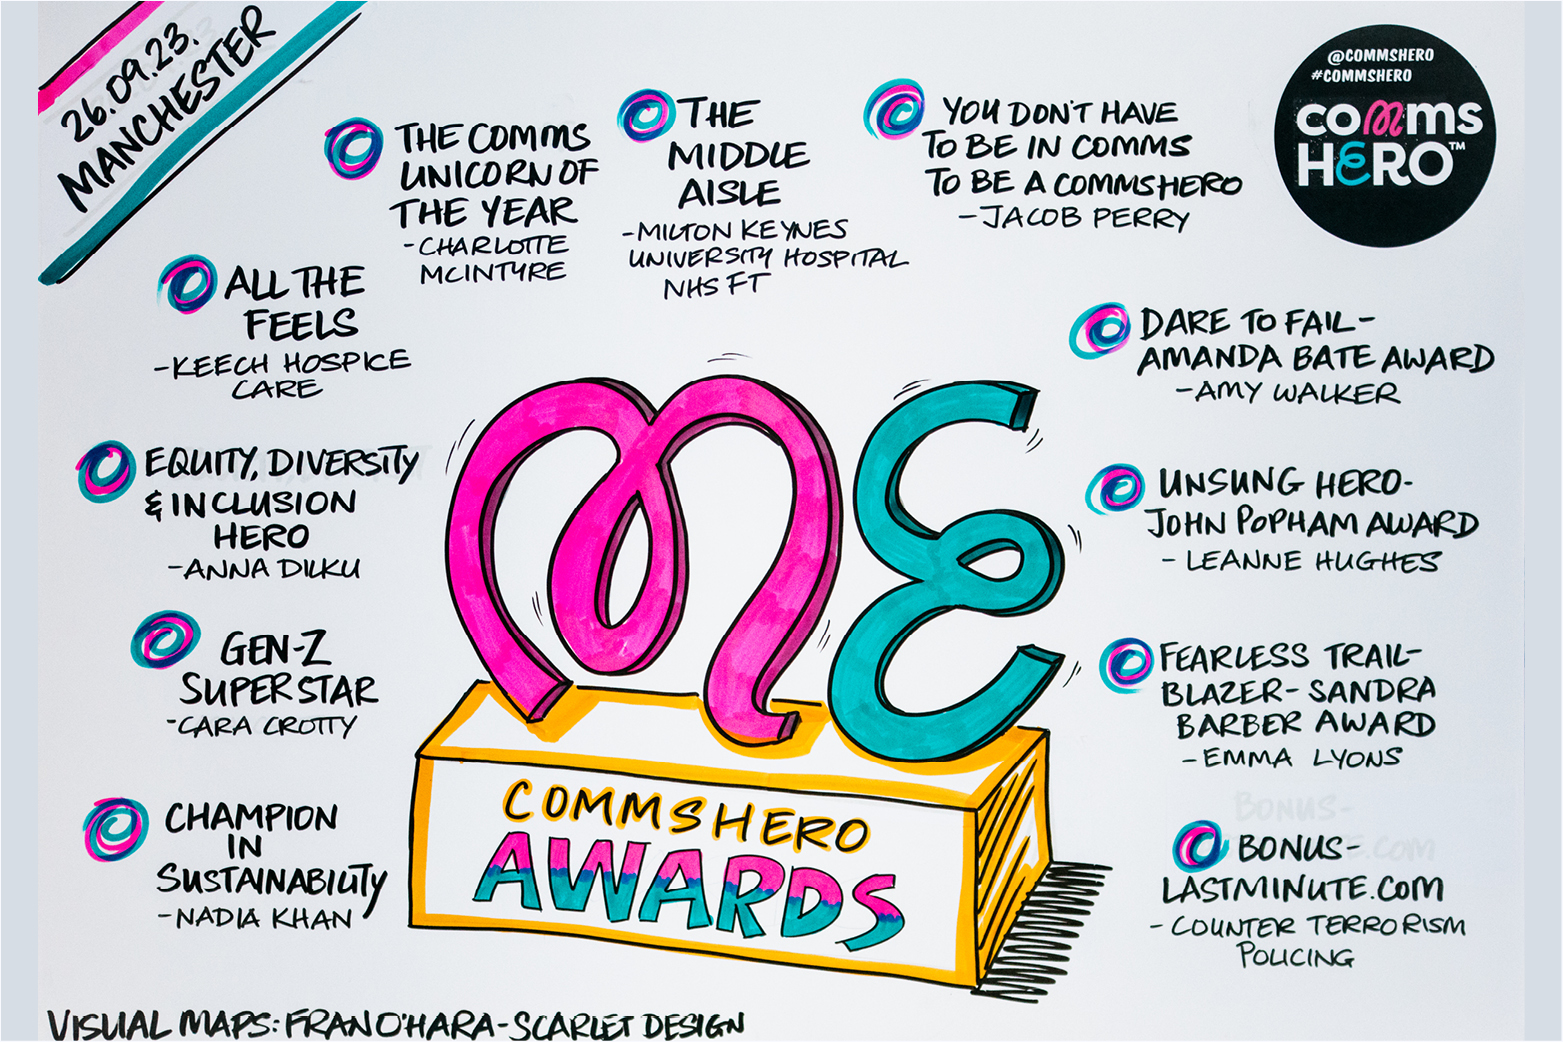 26.09.23.
MANCHESTER
@COMMSHERO
#COMMSHERO
comms
HERO™
THE COMMS
UNICORN OF
THE YEAR
-CHARLOTTE
MCINTYRE
THE
MIDDLE
AISLE
-MILTON KEYNES
UNIVERSITY HOSPITAL
NHS FT
YOU DON'T HAVE
TO BE IN COMMS
TO BE A COMMSHERO
-JACOB PERRY
ALL THE
FEELS
-KEECH HOSPICE
CARE
DARE TO FAIL-
AMANDA BATE AWARD
-AMY WALKER
EQUITY, DIVERSITY
& INCLUSION
HERO
-ANNA DILKU
UNSUNG HERO-
JOHN POPHAM AWARD
- LEANNE HUGHES
GEN-Z
SUPERSTAR
-CARA CROTTY
FEARLESS TRAIL-
BLAZER- SANDRA
BARBER AWARD
-EMMA LYONS
CHAMPION
IN
SUSTAINABILITY
-NADIA KHAN
BONUS-
LASTMINUTE.COM
- COUNTER TERRORISM
POLICING
ME
COMMSHERO
AWARDS
VISUAL MAPS: FRAN O'HARA-SCARLET DESIGN